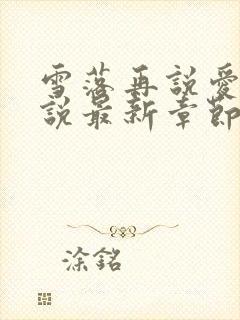 雪落再説愛
説最新章節
涂銘